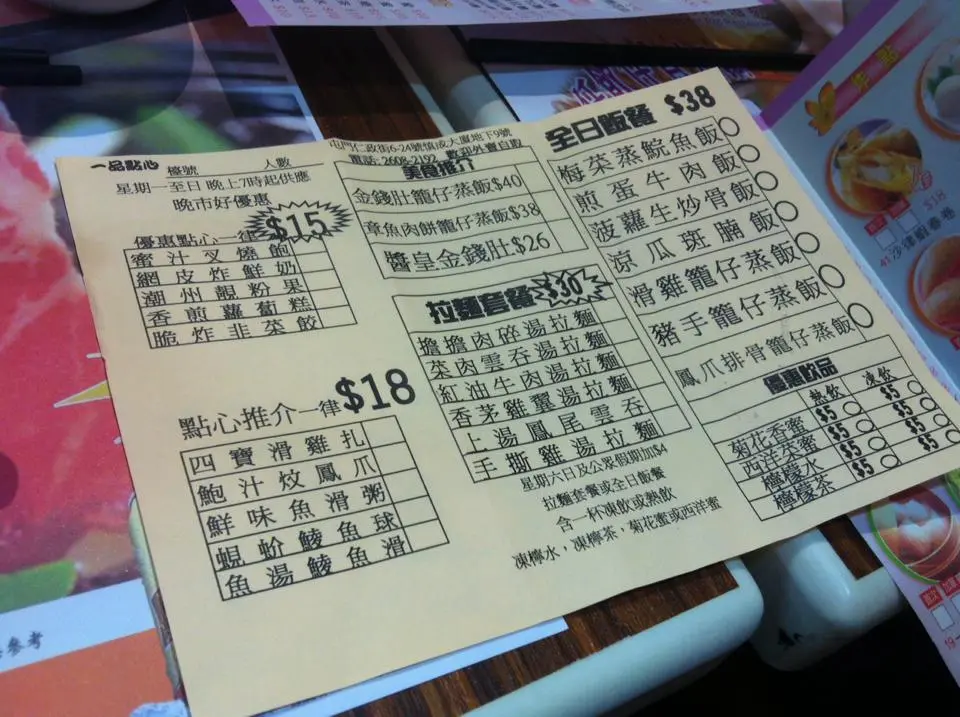 一品點心 檯號 人數
星期一至日 晚上7時起供應
晚市好優惠
優惠點心一律 $15
蜜汁叉燒飽
網皮炸鮮奶
潮州靚粉果
香煎蘿蔔糕
脆炸韭菜餃
點心推介一律 $18
四寶滑雞扎
鮑汁炆鳳爪
鮮味魚滑粥
蜆蚧鯪魚球
魚湯鯪魚滑
屯門仁政街6-24號慎成大廈地下9號
電話: 2608-2192 歡迎外賣自取
美食推介
金錢肚籠仔蒸飯$40
章魚肉餅籠仔蒸飯$38
醬皇金錢肚$26
拉麵套餐 $30
擔擔肉碎湯拉麵
菜肉雲吞湯拉麵
紅油牛肉湯拉麵
香茅雞翼湯拉麵
上湯鳳尾雲吞
手撕雞湯拉麵
星期六日及公眾假期加$4
拉麵套餐或全日飯餐
含一杯凍飲或熱飲
凍檸水，凍檸茶，菊花蜜或西洋蜜
全日飯餐 $38
梅菜蒸鯇魚飯
煎蛋牛肉飯
菠蘿生炒骨飯
涼瓜斑腩飯
滑雞籠仔蒸飯
豬手籠仔蒸飯
鳳爪排骨籠仔蒸飯
優惠飲品
熱飲 凍飲
菊花香蜜 $5 $5
西洋菜蜜 $5 $5
檸檬水 $5 $5
檸檬茶
點
$18
41 沙律蝦春卷
參考
19